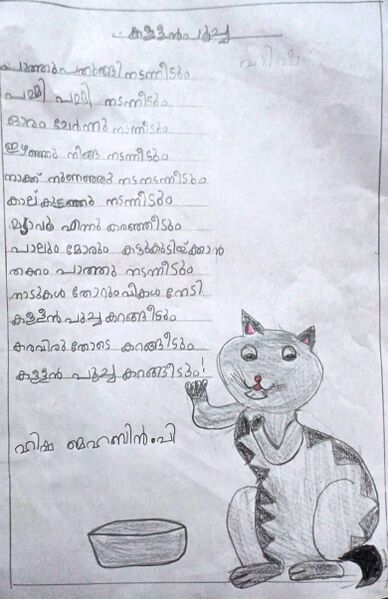 കള്ളൻപൂച്ച
പാത്തുപതുങ്ങി നടന്നീടും
പമ്മി പമ്മി നടന്നീടും
ഓരം ചേർന്നു നിന്നീടും
ഇഴഞ്ഞു നീങ്ങി നടന്നീടും
നാക്ക് നുണഞ്ഞു നടന്നീടും
കാല് കുടഞ്ഞു നടന്നീടും
മ്യാവൂ എന്ന് കരഞ്ഞീടും
പാലും മോരും കട്ടുകുടിയ്ക്കാൻ
തക്കം പാത്തു നടന്നീടും
നാടുകൾ തോറും നേടി
കള്ളൻ പൂച്ച കറങ്ങീടും
കരവിരുതോടെ കറങ്ങീടും
കള്ളൻ പൂച്ച കറങ്ങീടും!
ഹിഷ മെഹബിൻ.പി